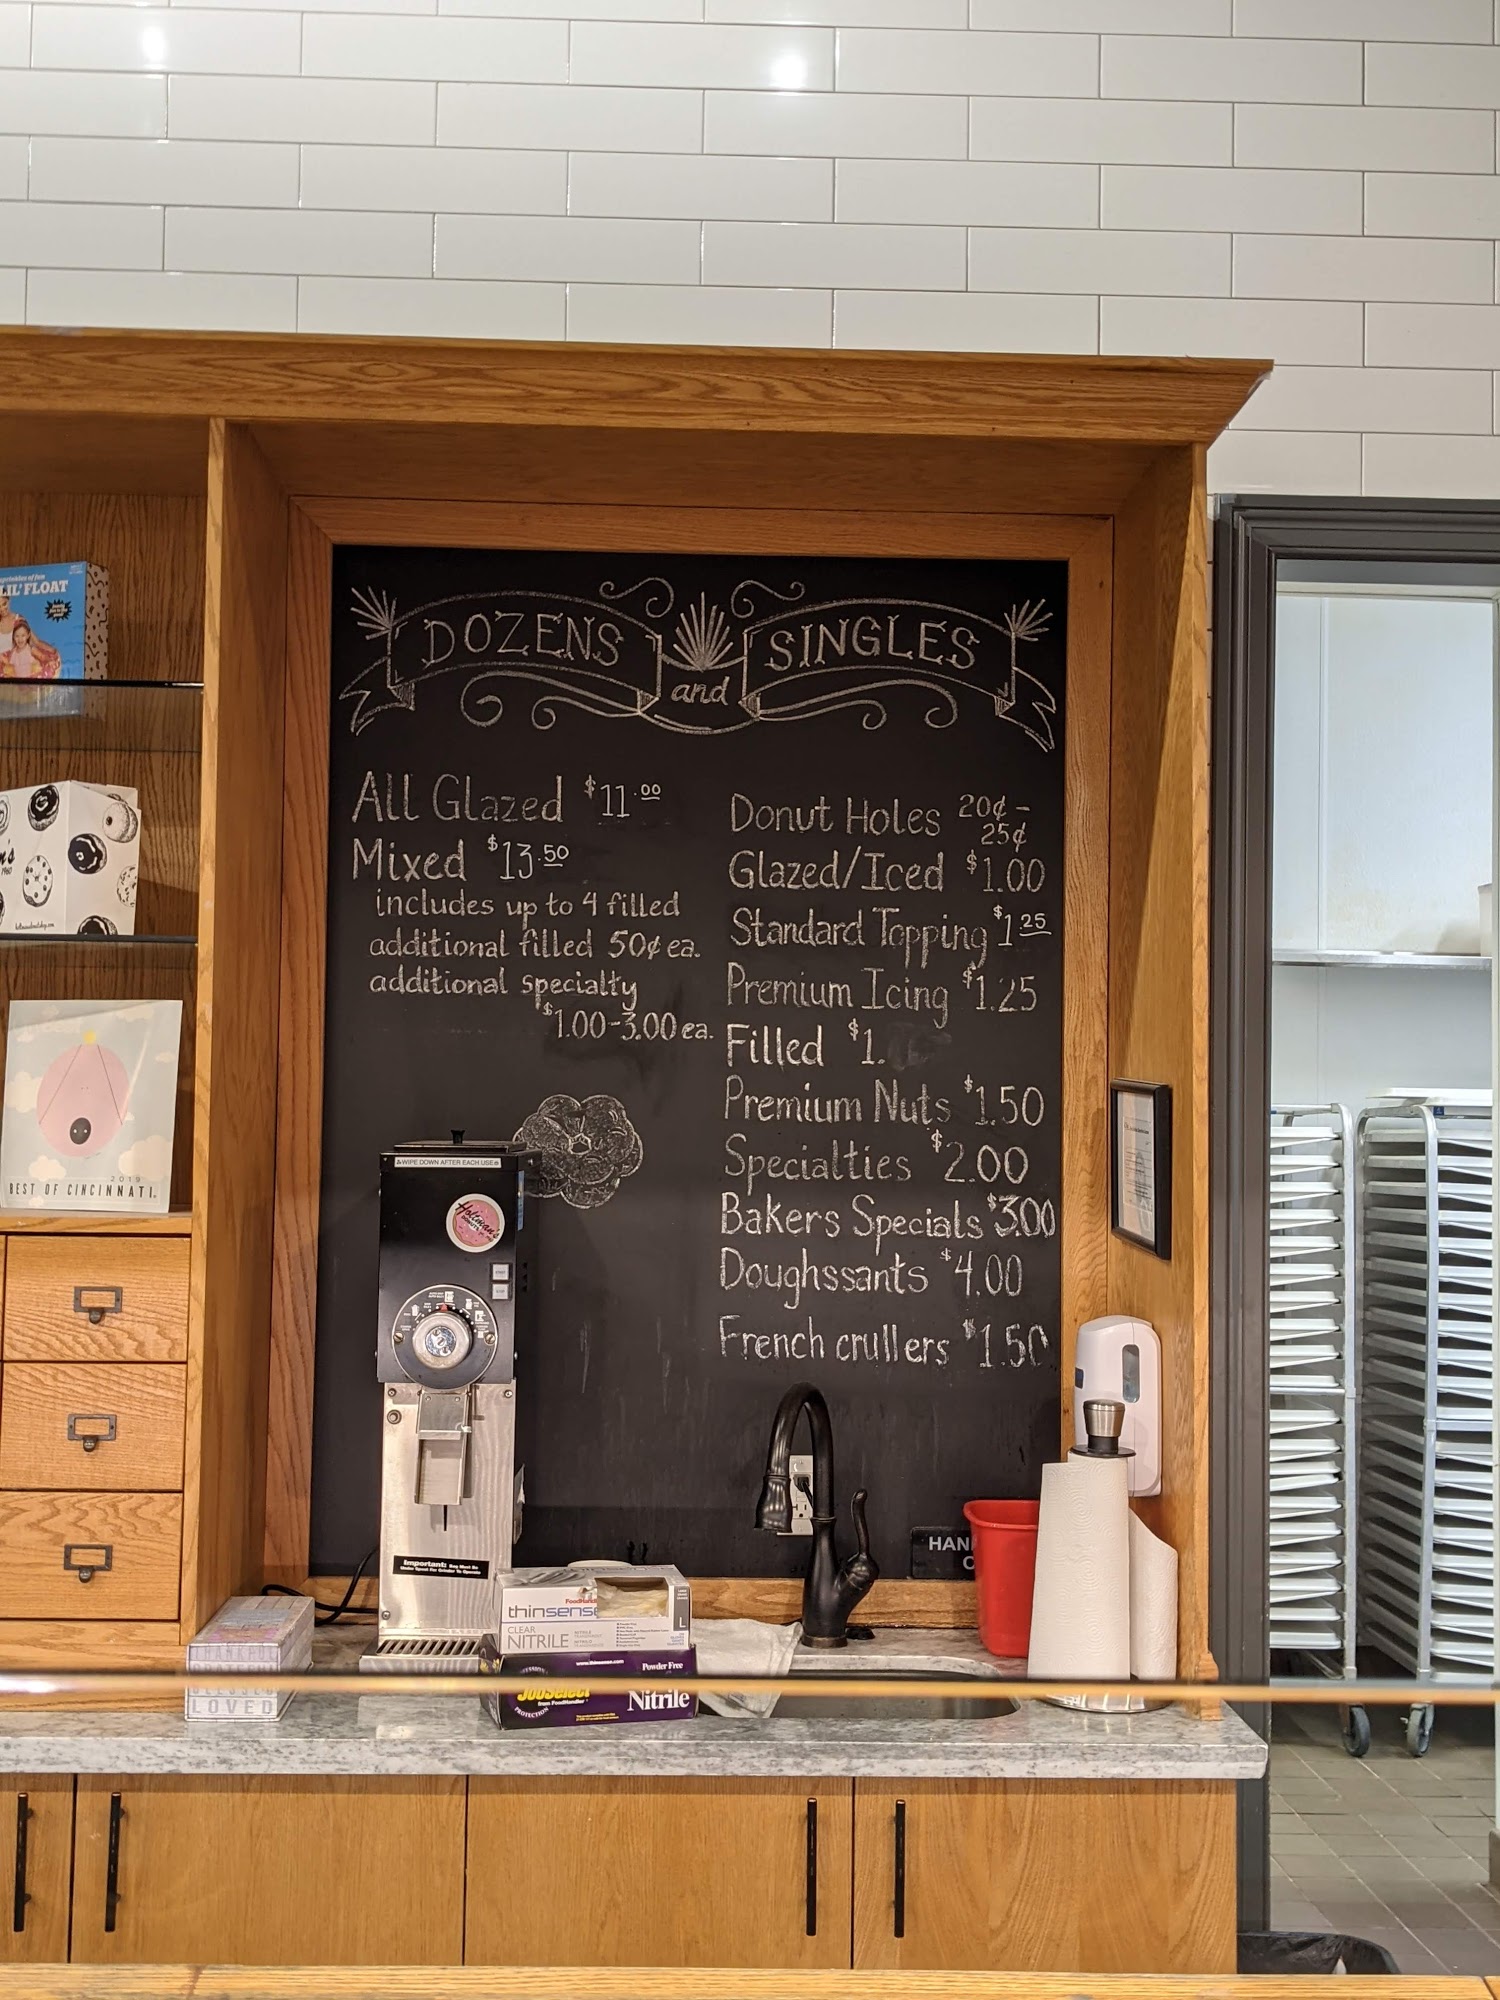 DOZENS and SINGLES
All Glazed $11.00
Mixed $13.50
includes up to 4 filled
additional filled 50¢ ea.
additional specialty
$1.00-3.00 ea.
Donut Holes 20¢ -
25¢
Glazed/Iced $1.00
Standard Topping $1.25
Premium Icing $1.25
Filled $1.
Premium Nuts $1.50
Specialties $2.00
Bakers Specials $3.00
Doughssants $4.00
French crullers $1.50
LIL' FLOAT
1960
2019
BEST OF CINCINNATI
WIPE DOWN AFTER EACH USE
Holtman's
Important: Bag Must Be
Under Spout For Grinder To Operate
HAN
C
FoodHandl
thinsense
CLEAR
NITRILE
L
Powder Free
JobSelect
from FoodHandler
PROTECTION
Nitrile
THANKFUL
GRATEFUL
BLESSED
LOVED